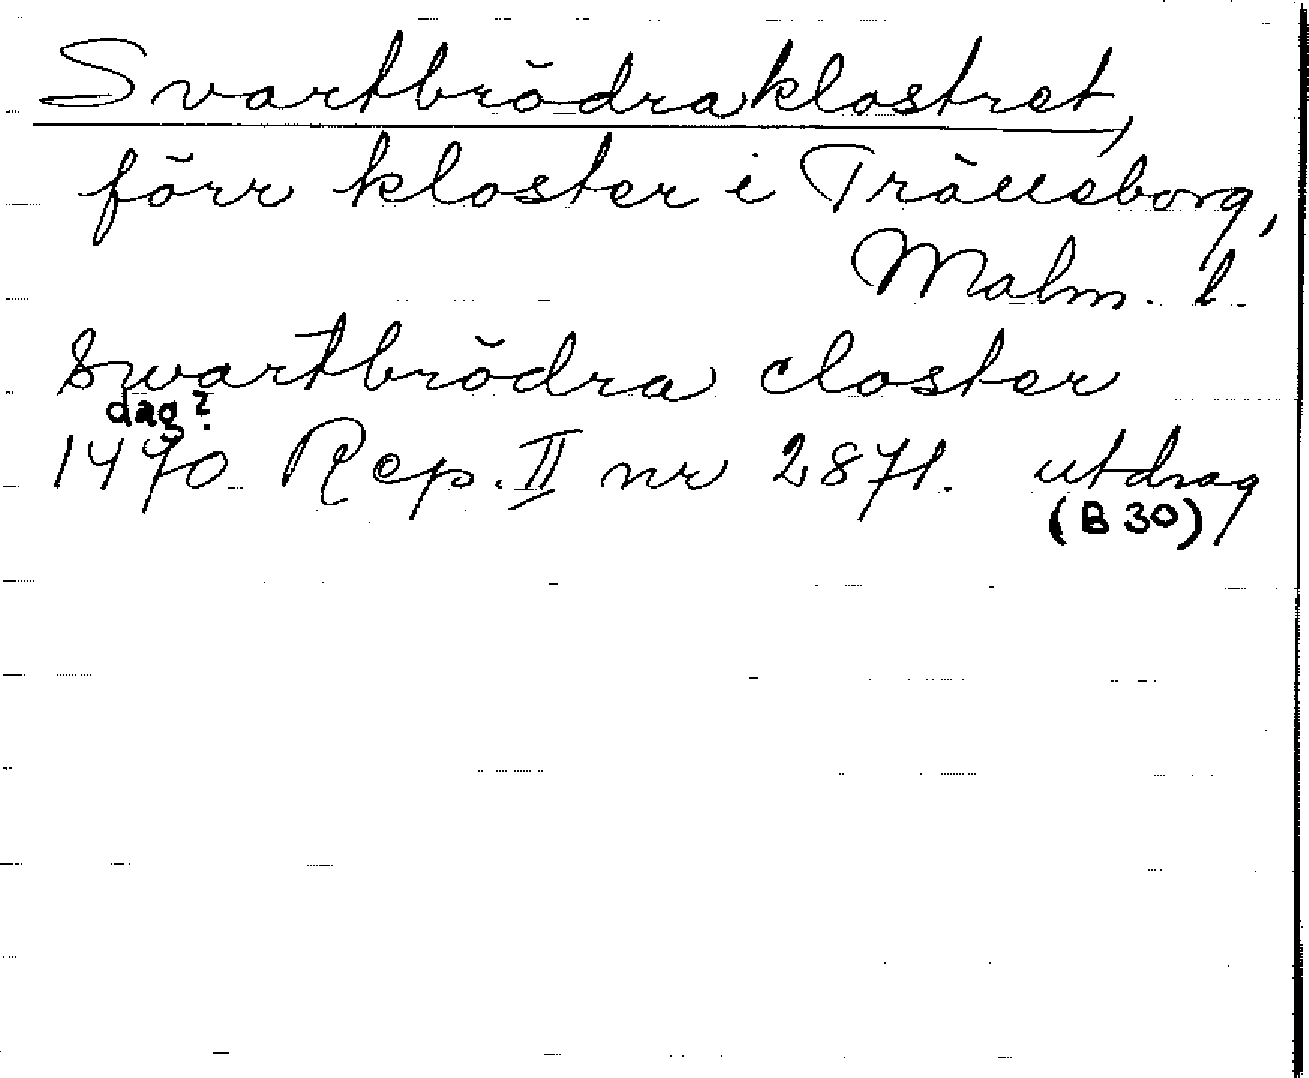 Svartbrödraklostret,
förr kloster i Trälleborg,
Malm. l.
Swartbrödra closter
dag?
1470 Rep. II nr 2871. utdrag
(B 30)